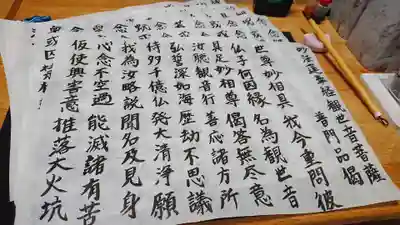 妙法蓮華経観世音菩薩
普門品偈
世尊妙相具 我今重問彼
仏子何因縁 名為観世音
具足妙相尊 偈答無尽意
汝聴観音行 善応諸方所
弘誓深如海 歴劫不思議
侍多千億仏 発大清浄願
我為汝略説 聞名及見身
心念不空過 能滅諸有苦
仮使興害意 推落大火坑